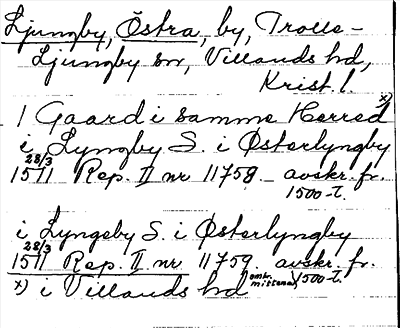 Ljungby, Östra, by, Trolle-
Ljungby sn, Villands hd,
Krist. l.
x)
1 Gaard i samme Herred
i Lyngby S. i Østerlyngby
28/3
1511 Rep. II nr 11759. avskr. fr.
1500-t.
i Lyngeby S. i Østerlyngby
28/3
1511 Rep. II nr 11759. avskr. fr.
x) i Villands hd omkr. mitten av 1500-t.